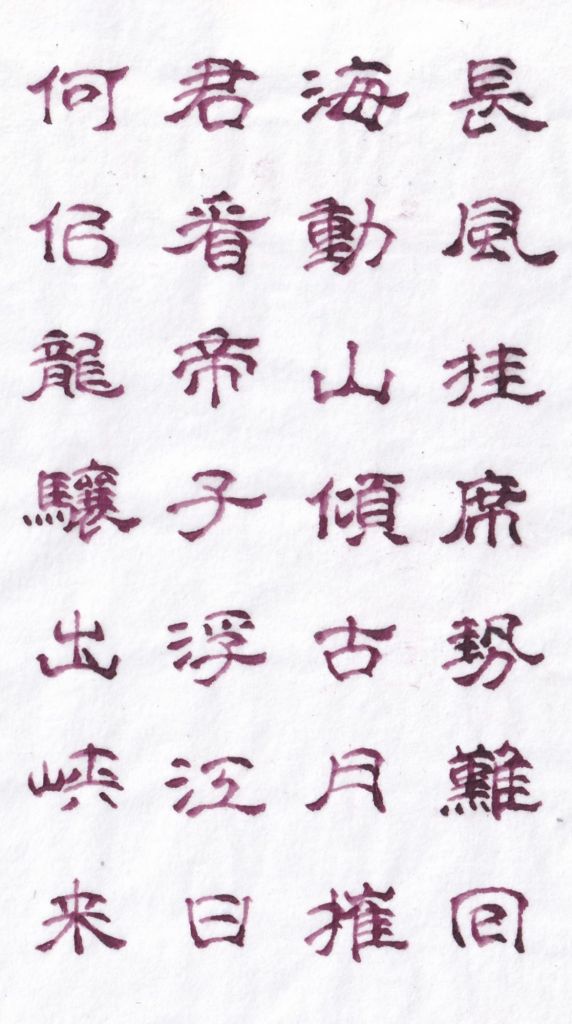 長風挂席勢難回
海動山傾古月摧
君看帝子浮江日
何佀龍驤出峡来